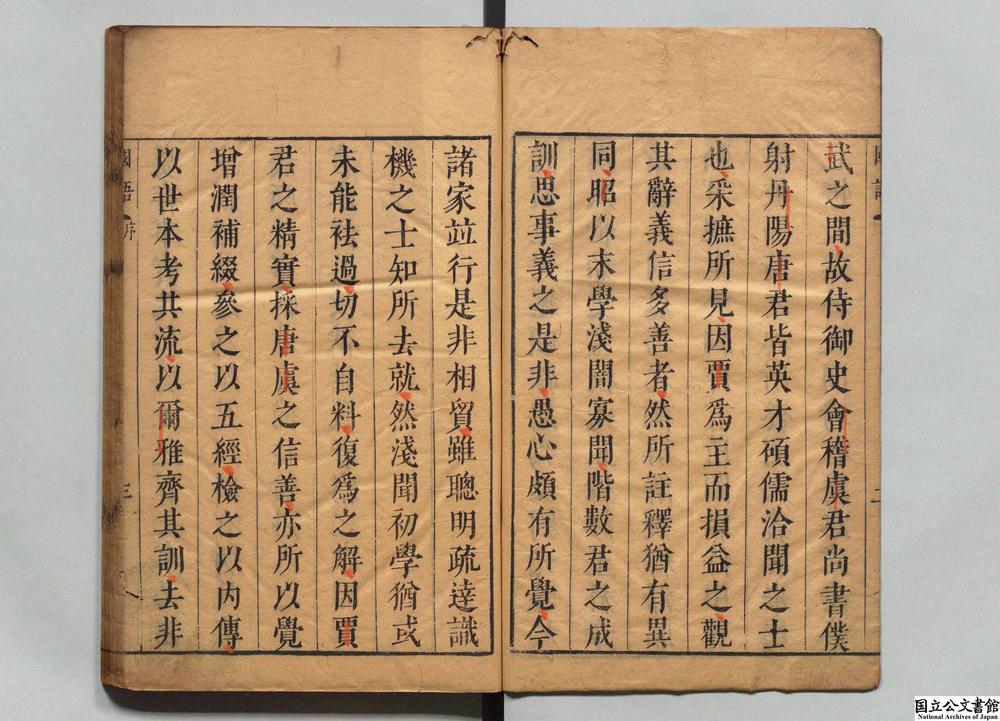 武之間故侍御史會稽虞君尚書僕
射丹陽唐君皆英才碩儒洽聞之士
也采摭所見因賈爲主而損益之觀
其辭義信多善者然所註釋猶有異
同昭以末學淺闇寡聞階數君之成
訓思事義之是非愚心頗有所覺今
諸家竝行是非相貿雖聰明疏達識
機之士知所去就然淺聞初學猶或
未能袪過切不自料復爲之解因賈
君之精實採唐虞之信善亦所以覺
增潤補綴參之以五經檢之以内傳
以世本考其流以爾雅齊其訓去非
國語 序
三
国立公文書館
National Archives of Japan